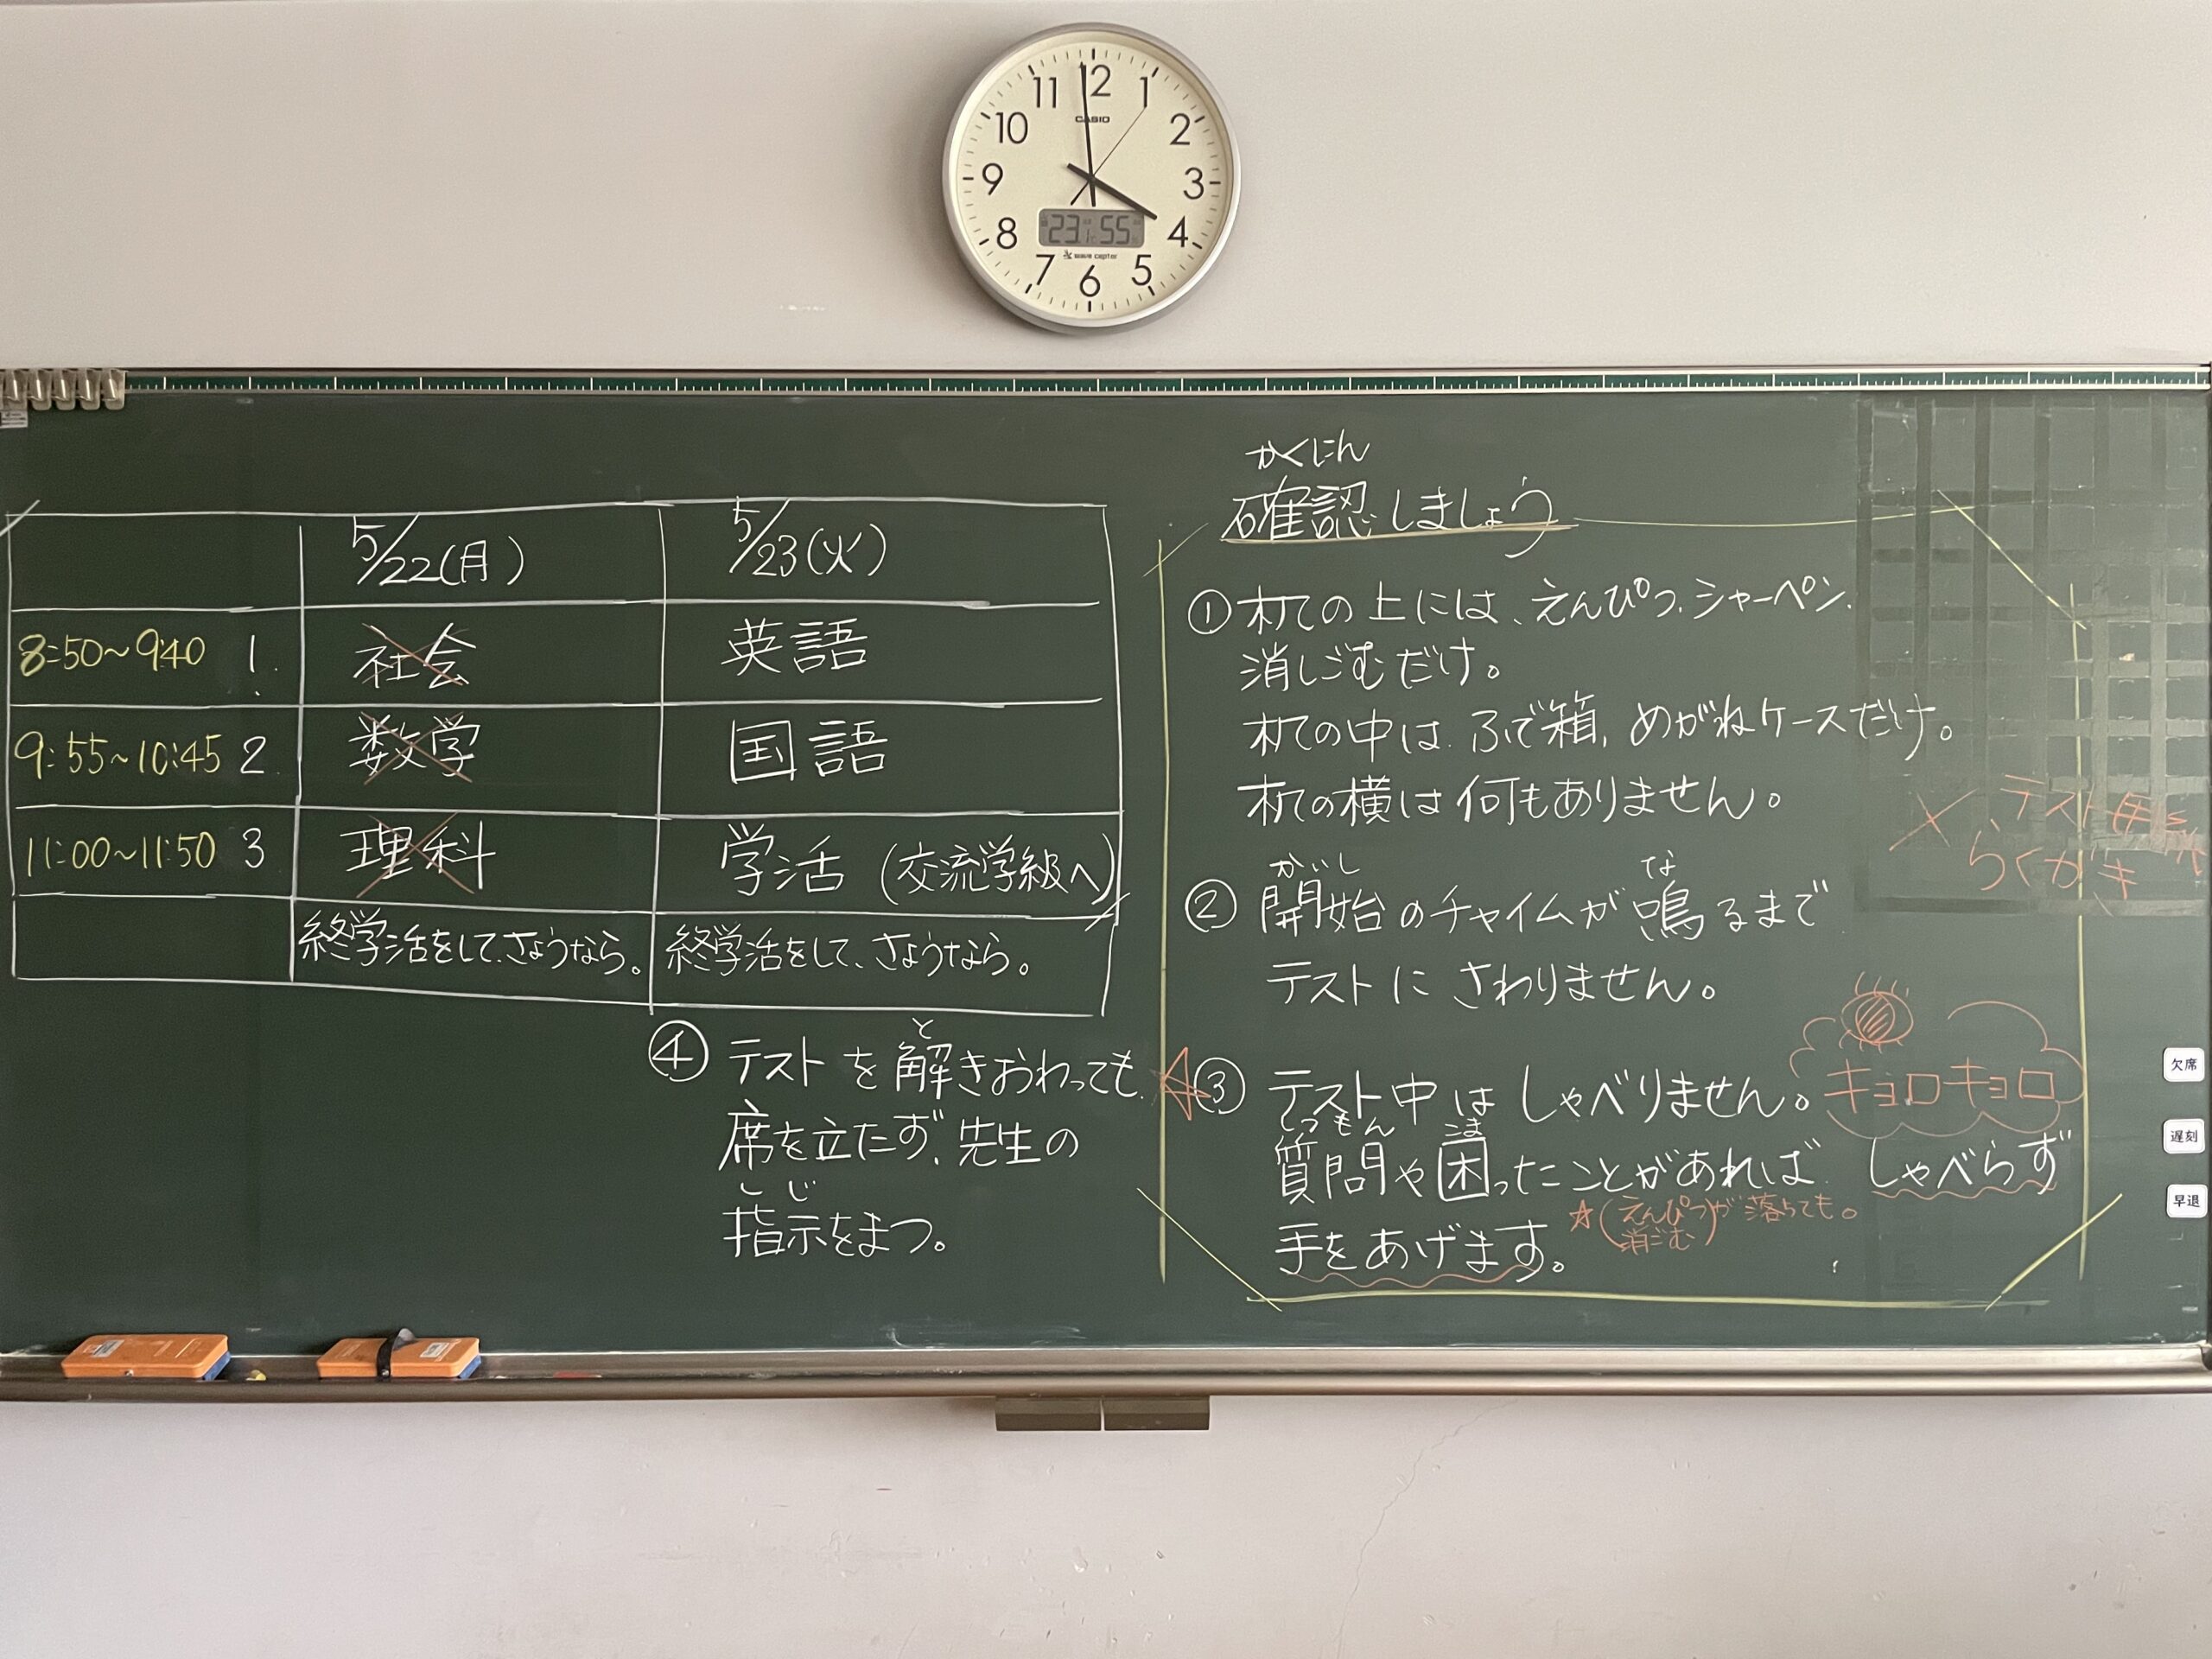 11 12 1
10 2
9 3
8 4
7 6 5
CASIO
23 55
wave ceptor
5/22(月) 5/23(火)
8:50~9:40 1. 社会 英語
9:55~10:45 2 数学 国語
11:00~11:50 3 理科 学活 (交流学級へ)
終学活をして、さようなら。 終学活をして、さようなら。
④ と
テストを解きおわっても、
席を立たず、先生の
しじ
指示をまつ。
かくにん
確認しましょう
① 机の上には、えんぴつ、シャーペン、
消しごむだけ。
机の中は、ふで箱、めがねケースだけ。
机の横は何もありません。
× テスト用紙
らくがき
かいし な
② 開始のチャイムが鳴るまで
テストにさわりません。
☆③ テスト中はしゃべりません。
キョロキョロ
しつもん こま
質問や困ったことがあれば、しゃべらず
手をあげます。
☆(えんぴつ 消ごむ)が落ちても。
欠席
遅刻
早退